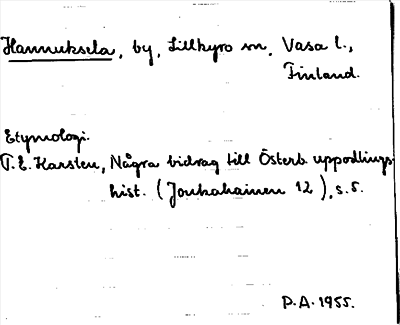 Hannuksela, by, Lillkyro sn, Vasa l.,
Finland.
Etymologi.
T.E. Karsten, Några bidrag till Österb. uppodlings-
hist. (Joukahainen 12), s. 5.
P.A. 1955.